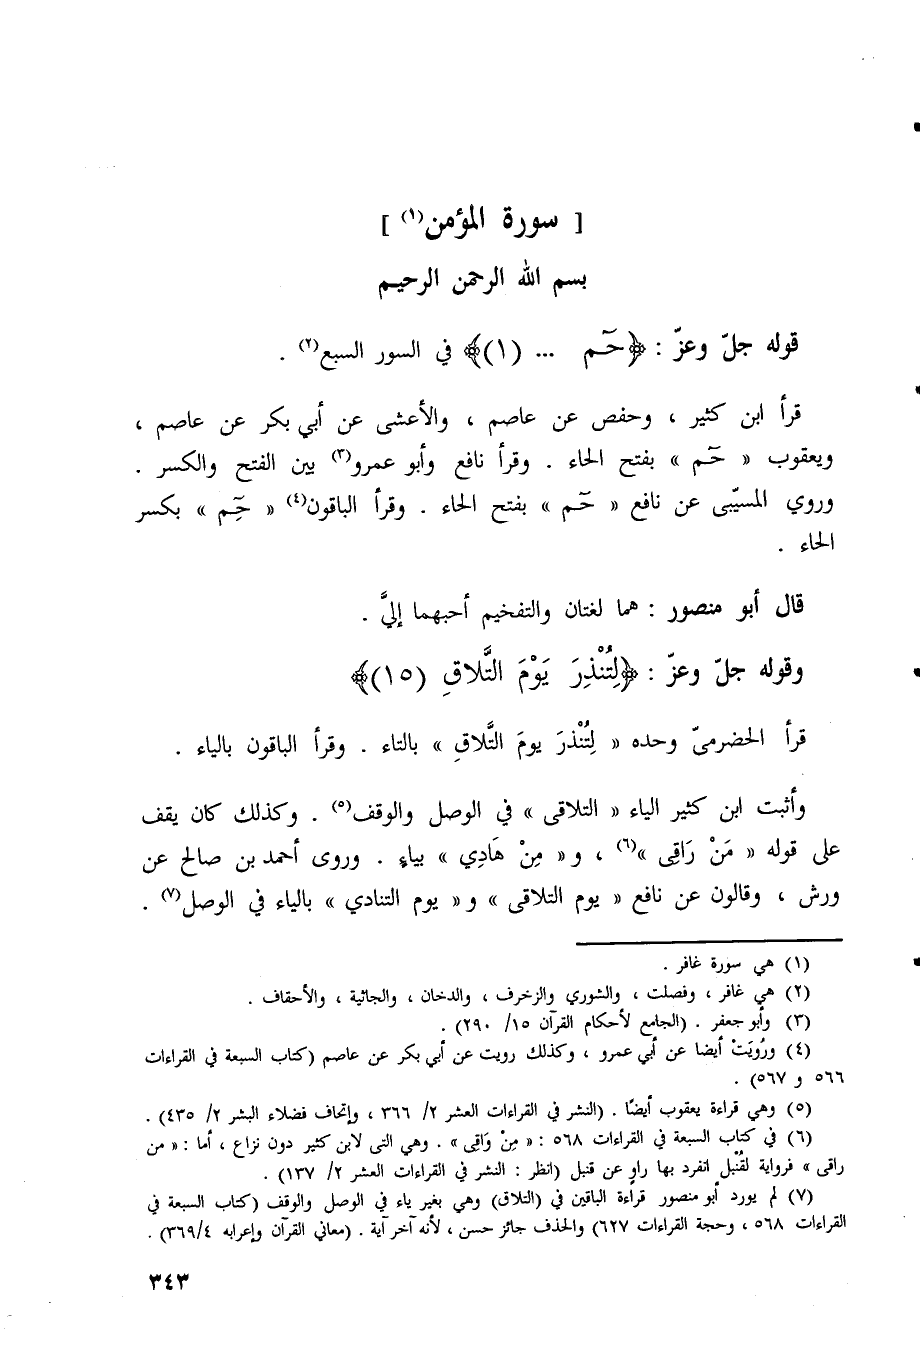 [ سورة المؤمن(١) ]
بسم الله الرحمن الرحيم
قوله جلّ وعزّ : ﴿حَـٓم ... (١)﴾ في السور السبع(٢) .
قرأ ابن كثير ، وحفص عن عاصم ، والأعشى عن أبي بكر عن عاصم ،
ويعقوب « حَـٓم » بفتح الحاء . وقرأ نافع وأبو عمرو(٣) بين الفتح والكسر .
وروي المسيّبى عن نافع « حَـٓم » بفتح الحاء . وقرأ الباقون(٤) « حِـٓم » بكسر
الحاء .
قال أبو منصور : هما لغتان والتفخيم أحبهما إليَّ .
وقوله جلّ وعزّ : ﴿لِتُنْذِرَ يَوْمَ التَّلاقِ (١٥)﴾
قرأ الحضرميّ وحده « لِتُنْذرَ يومَ التَّلاقِ » بالتاء . وقرأ الباقون بالياء .
وأثبت ابن كثير الياء « التلاقى » في الوصل والوقف(٥) . وكذلك كان يقف
على قوله « مَنْ رَاقِى »(٦) ، و « مِنْ هَادِي » بياءٍ . وروى أحمد بن صالح عن
ورش ، وقالون عن نافع « يوم التلاقى » و « يوم التنادي » بالياء في الوصل(٧) .
(١) هي سورة غافر .
(٢) هي غافر ، وفصلت ، والشوري والزخرف ، والدخان ، والجاثية ، والأحقاف .
(٣) وأبو جعفر . (الجامع لأحكام القرآن ١٥/ ٢٩٠) .
(٤) ورُويَتْ أيضا عن أبي عمرو ، وكذلك رويت عن أبي بكر عن عاصم (كتاب السبعة في القراءات
٥٦٦ و ٥٦٧) .
(٥) وهي قراءة يعقوب أيضًا . (النشر في القراءات العشر ٢/ ٣٦٦ ، وإتحاف فضلاء البشر ٢/ ٤٣٥) .
(٦) في كتاب السبعة في القراءات ٥٦٨ : « مِنْ وَاقِى » . وهي التى لابن كثير دون نزاع ، أما : « من
راقى » فرواية لقُنْبل انفرد بها راو عن قنبل (انظر : النشر في القراءات العشر ٢/ ١٣٧) .
(٧) لم يورد أبو منصور قراءة الباقين في (التلاق) وهي بغير ياء في الوصل والوقف (كتاب السبعة في
القراءات ٥٦٨ ، وحجة القراءات ٦٢٧) والحذف جائز حسن ، لأنه آخر آية . (معاني القرآن وإعرابه ٣٦٩/٤) .
٣٤٣